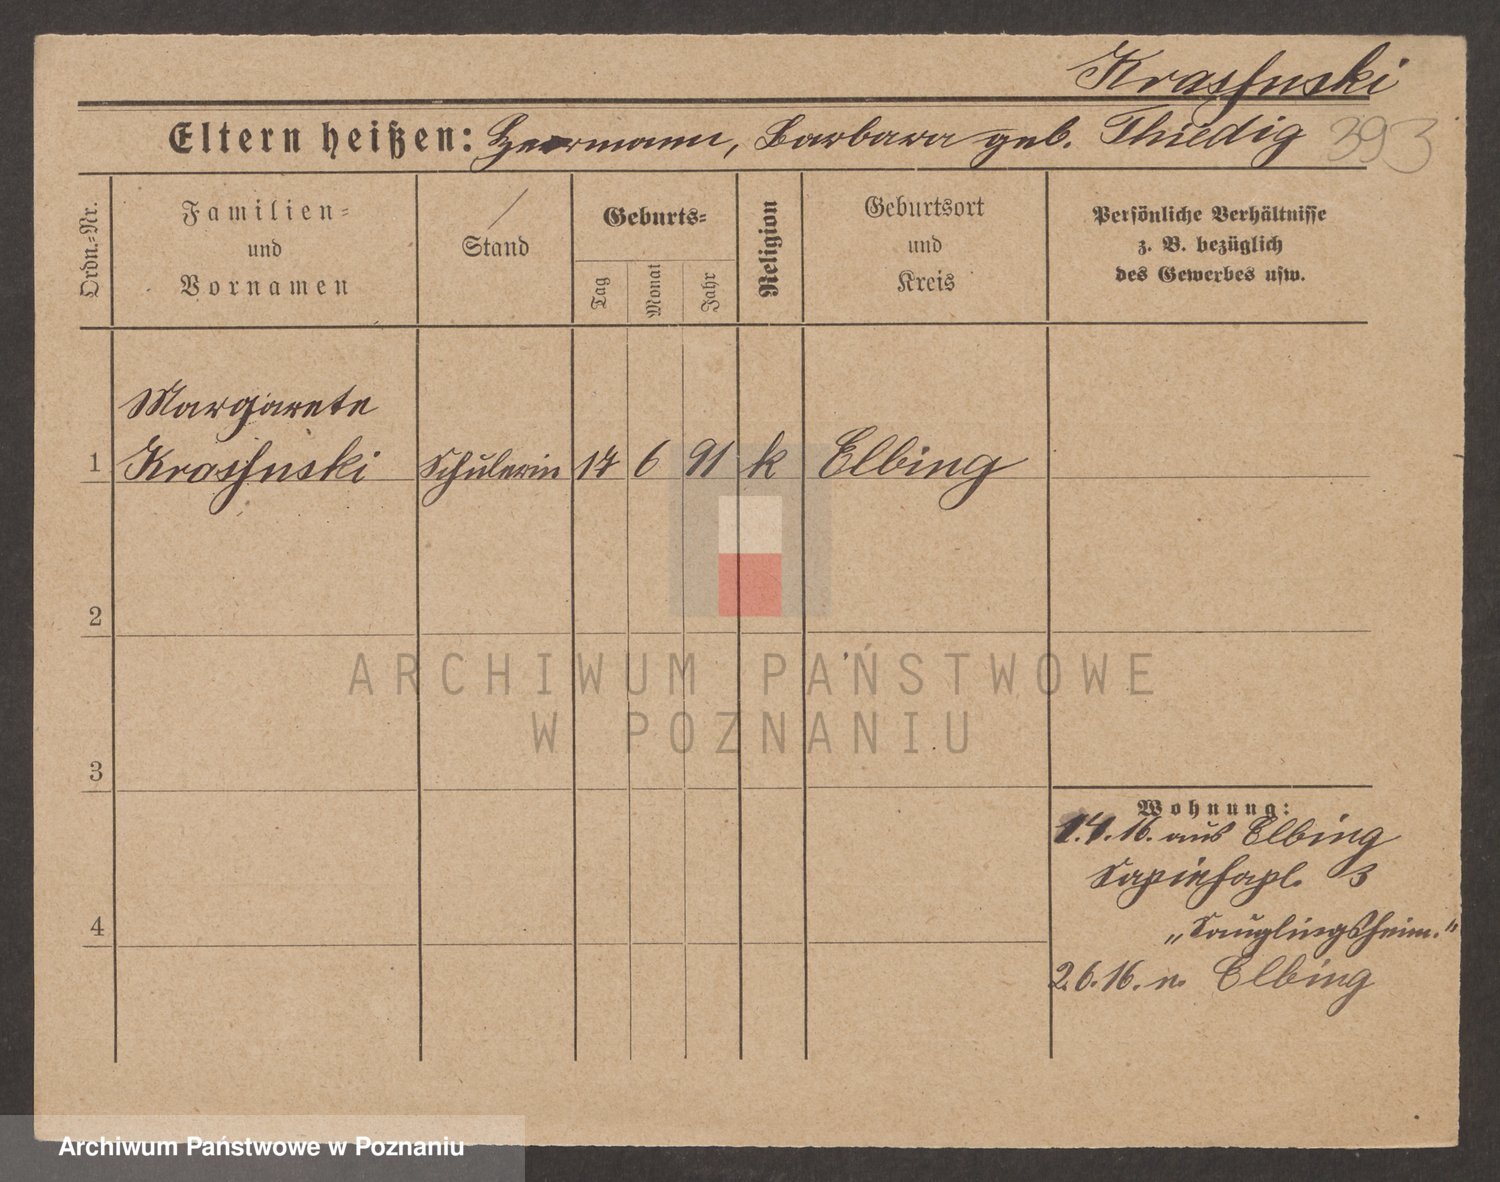 Kraschnski
Eltern heißen: Hermann, Barbara geb. Thiedig 393
Ordn.-Nr.
Familien-
und
Vornamen
Stand
Geburts-
Tag
Monat
Jahr
Religion
Geburtsort
und
Kreis
Persönliche Verhältnisse
z. B. bezüglich
des Gewerbes usw.
Margarete
1 Kraschnski Schülerin 17 6 91 k Elbing
2
ARCHIWUM PAŃSTWOWE
W POZNANIU
3
Wohnung:
1.4.16. aus Elbing
Sapiehapl. 3
4
„Säuglingsheim."
2.6.16. n. Elbing
Archiwum Państwowe w Poznaniu